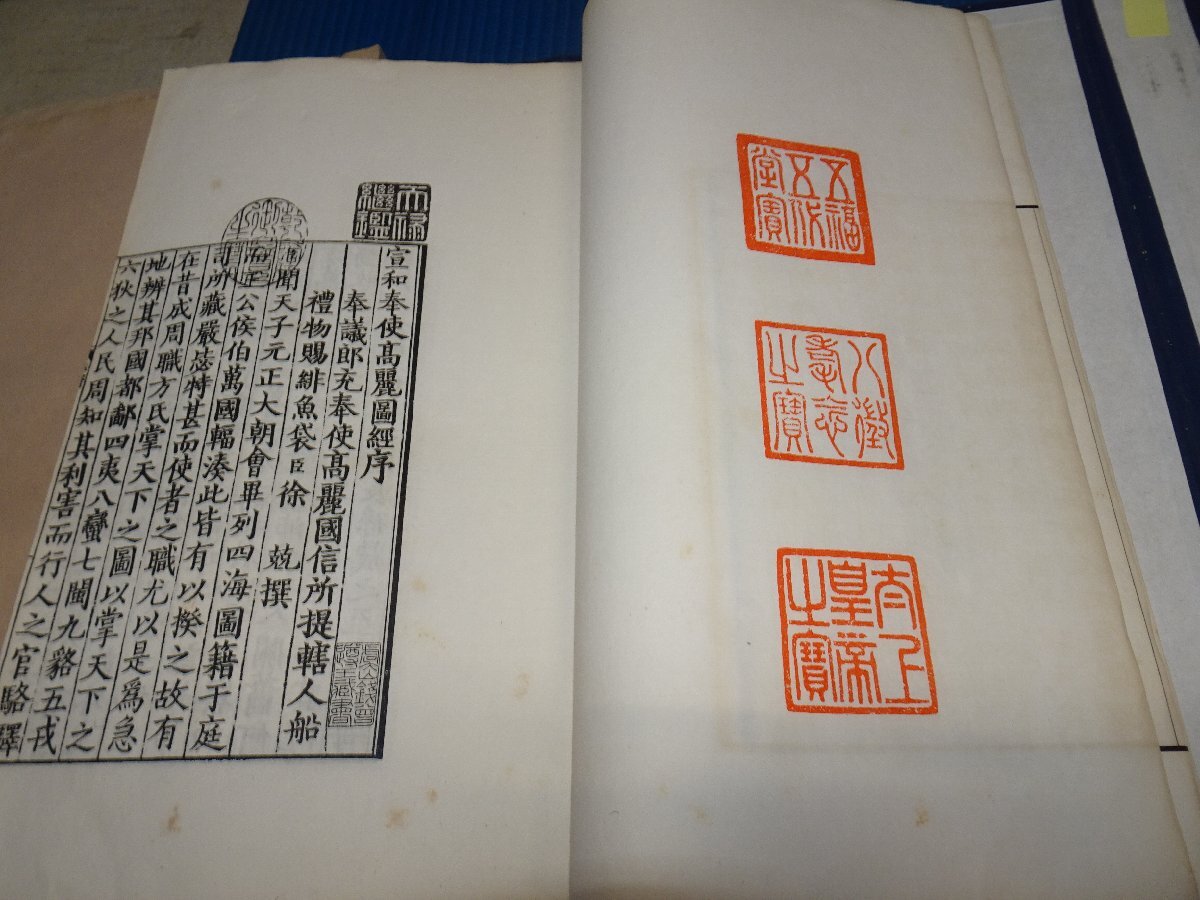 五福五代堂寶
八徵耄念之寶
太上皇帝之寶
天祿繼鑑
乾隆御覽之寶
宣和奉使髙麗圖經序
奉議郎充奉使髙麗國信所提轄人船
禮物賜緋魚袋臣徐 兢撰
臣聞天子元正大朝會畢列四海圖籍于庭
而王公侯伯萬國輻湊此皆有以揆之故有
司所藏嚴毖特甚而使者之職尤以是爲急
在昔成周職方氏掌天下之圖以掌天下之
地辨其邦國都鄙四夷八蠻七閩九貉五戎
六狄之人民周知其利害而行人之官駱驛